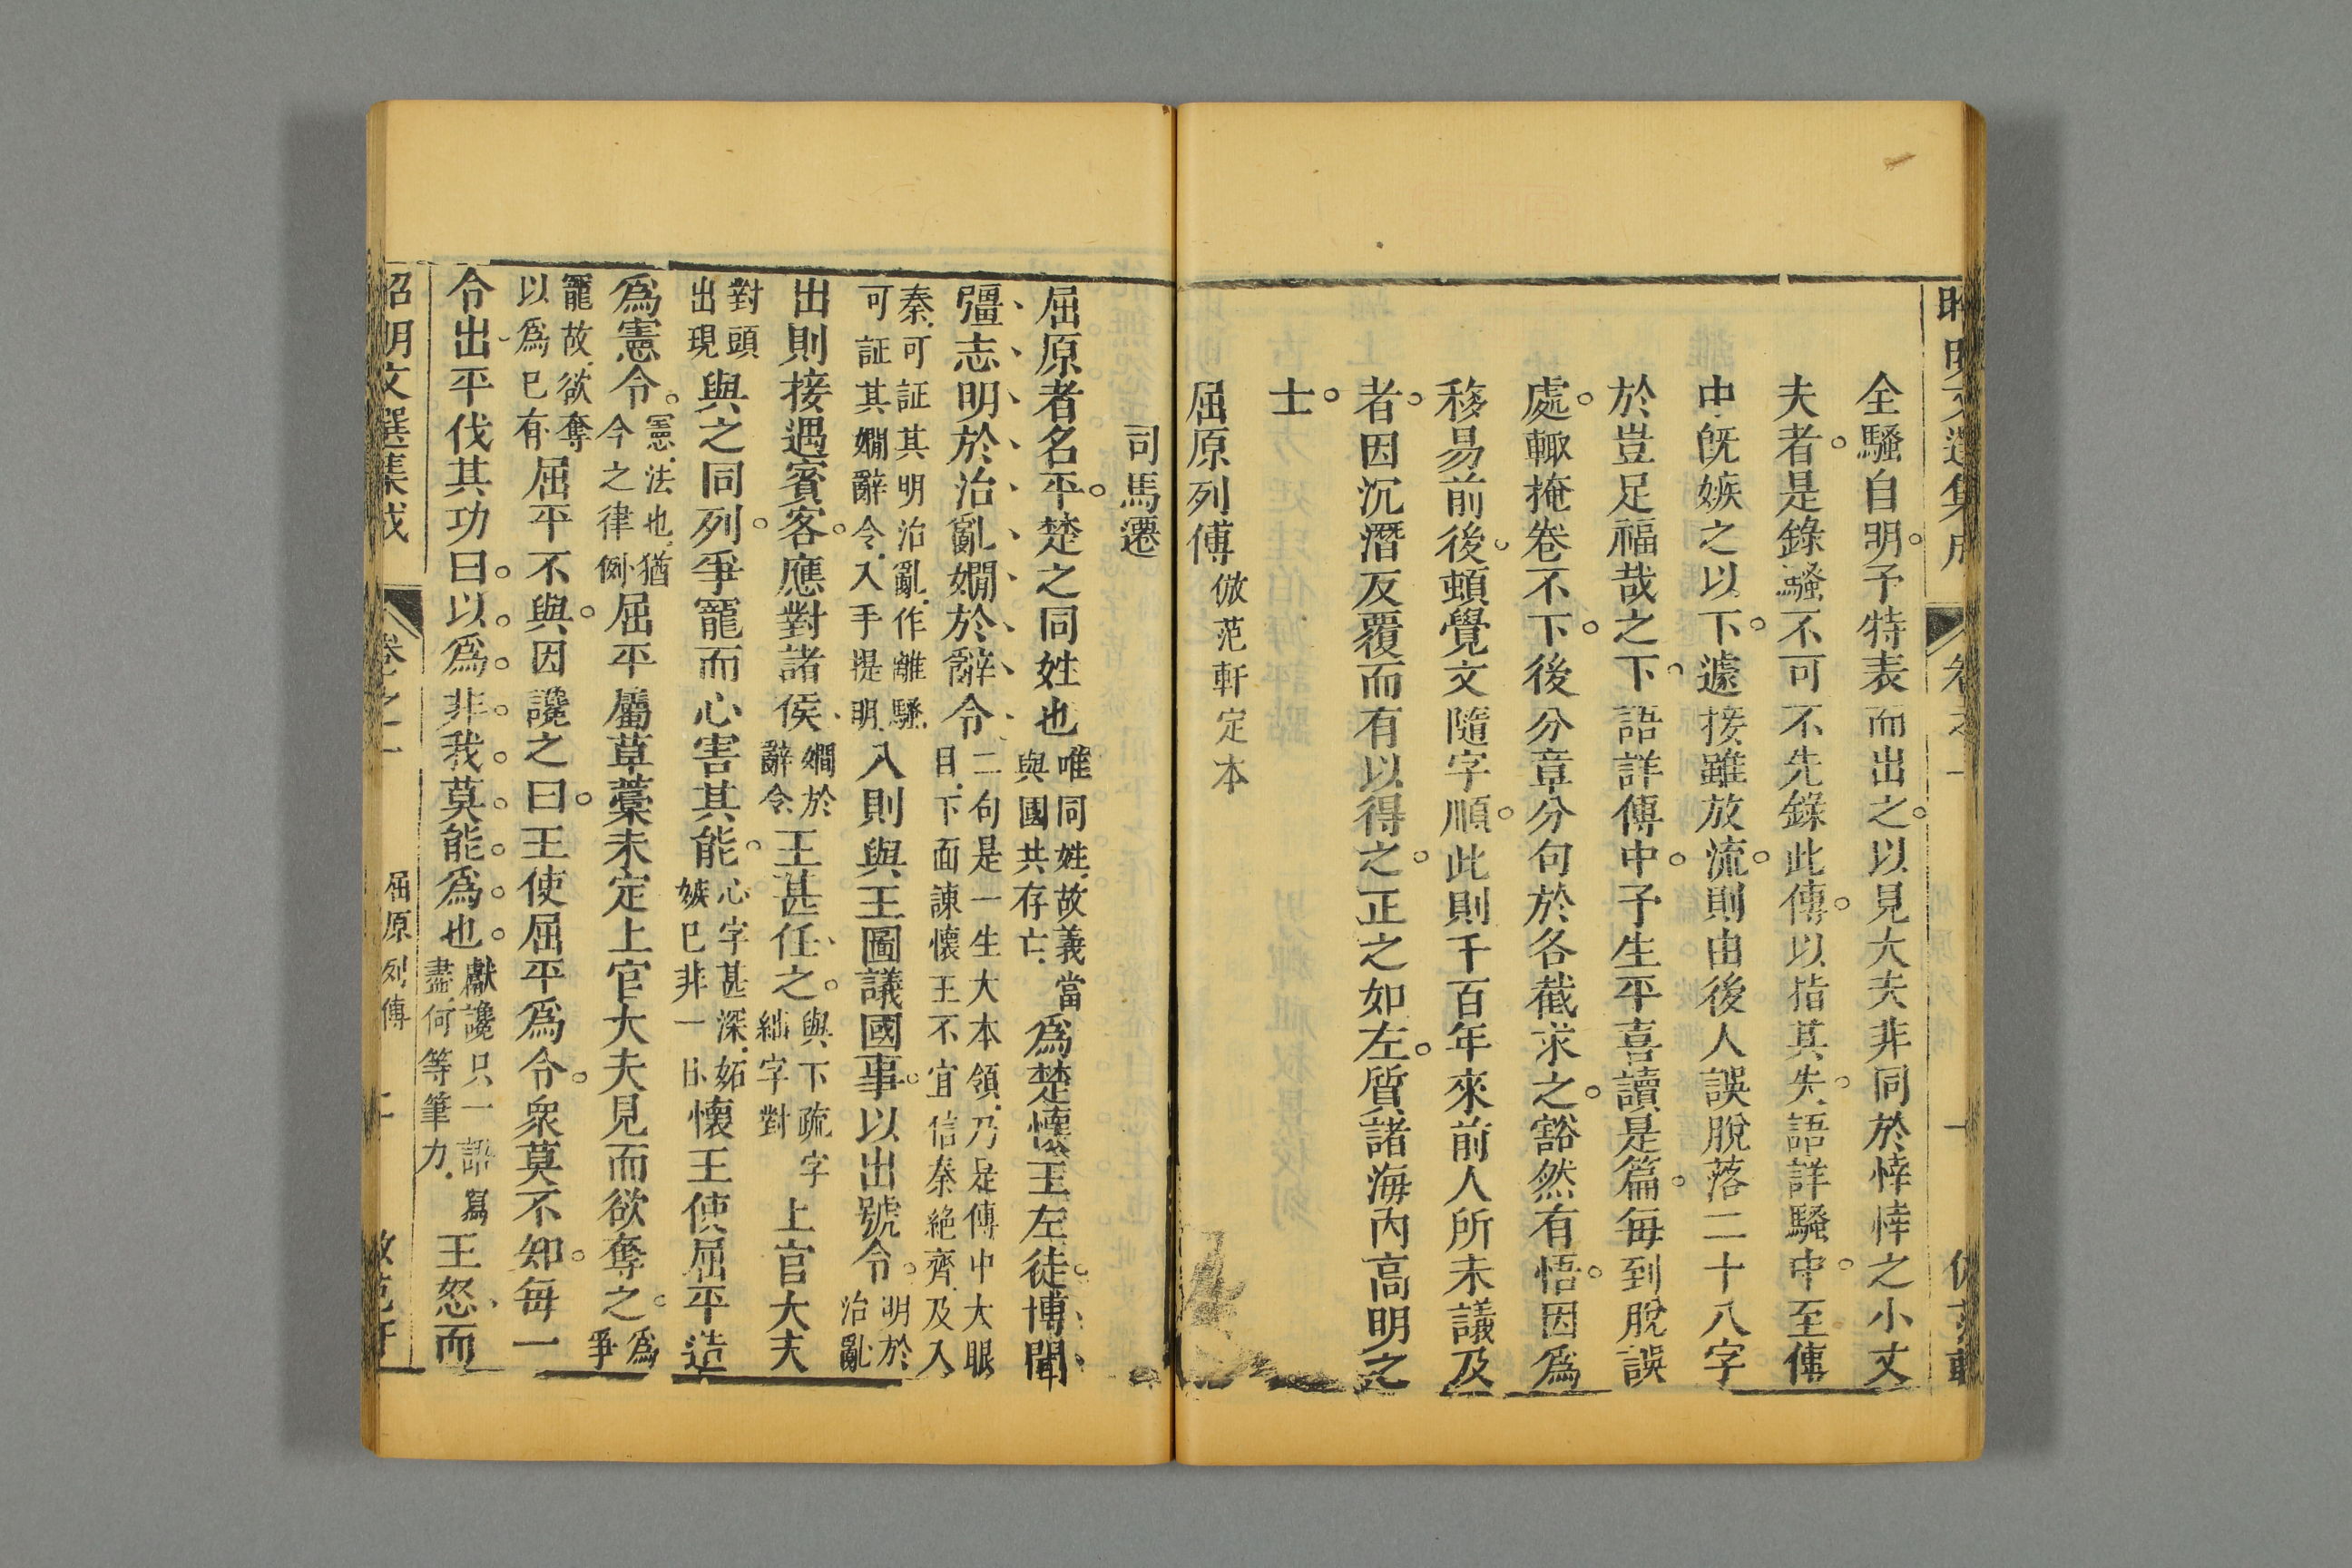 昭明文選集成 卷之一 一 倣范軒
全騷自明予特表而出之以見大夫非同於悻悻之小丈
夫者是錄騷不可不先錄此傳以指其失語詳騷中至傳
中旣嫉之以下遽接雖放流則由後人誤脫落二十八字
於豈足福哉之下語詳傳中予生平喜讀是篇每到脫誤
處輙掩卷不下後分章分句於各截求之豁然有悟因爲
移易前後頓覺文隨字順此則千百年來前人所未議及
者因沉潛反覆而有以得之正之如左質諸海內高明之
士
屈原列傳 倣范軒定本
司馬遷
屈原者名平楚之同姓也 唯同姓故義當與國共存亡 爲楚懷王左徒博聞
彊志明於治亂嫺於辭令 二句是一生大本領乃是傳中大眼目下面諫懷王不宜信秦絶齊及入
秦可証其明治亂作離騷可証其嫺辭令入手提明 入則與王圖議國事以出號令 明於治亂
出則接遇賓客應對諸侯 嫺於辭令 王甚任之 與下疏字絀字對 上官大夫
對頭出現 與之同列爭寵而心害其能 心字甚深妬嫉已非一日 懷王使屈平造
爲憲令 憲法也猶今之律例 屈平屬草藁未定上官大夫見而欲奪之 爲爭
寵故欲奪以爲已有 屈平不與因讒之曰王使屈平爲令衆莫不知每一
令出平伐其功曰以爲非我莫能爲也 獻讒只一語寫盡何等筆力 王怒而
昭明文選集成 卷之一 屈原列傳 二 倣范軒